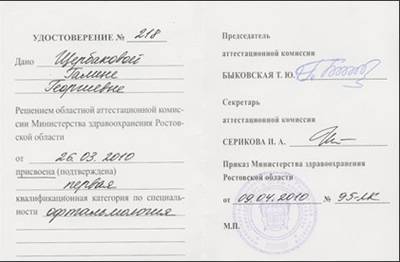 УДОСТОВЕРЕНИЕ № 218
Дано Щербаковой
Галине
Георгиевне
Решением областной аттестационной комис-
сии Министерства здравоохранения Ростов-
ской области
от 26.03.2010
присвоена (подтверждена)
первая
квалификационная категория по специаль-
ности офтальмология
Председатель
аттестационной комиссии
БЫКОВСКАЯ Т. Ю.
Секретарь
аттестационной комиссии
СЕРИКОВА И. А.
Приказ Министерства здравоохранения
Ростовской области
от 09.04.2010 № 95-лк
М.П.